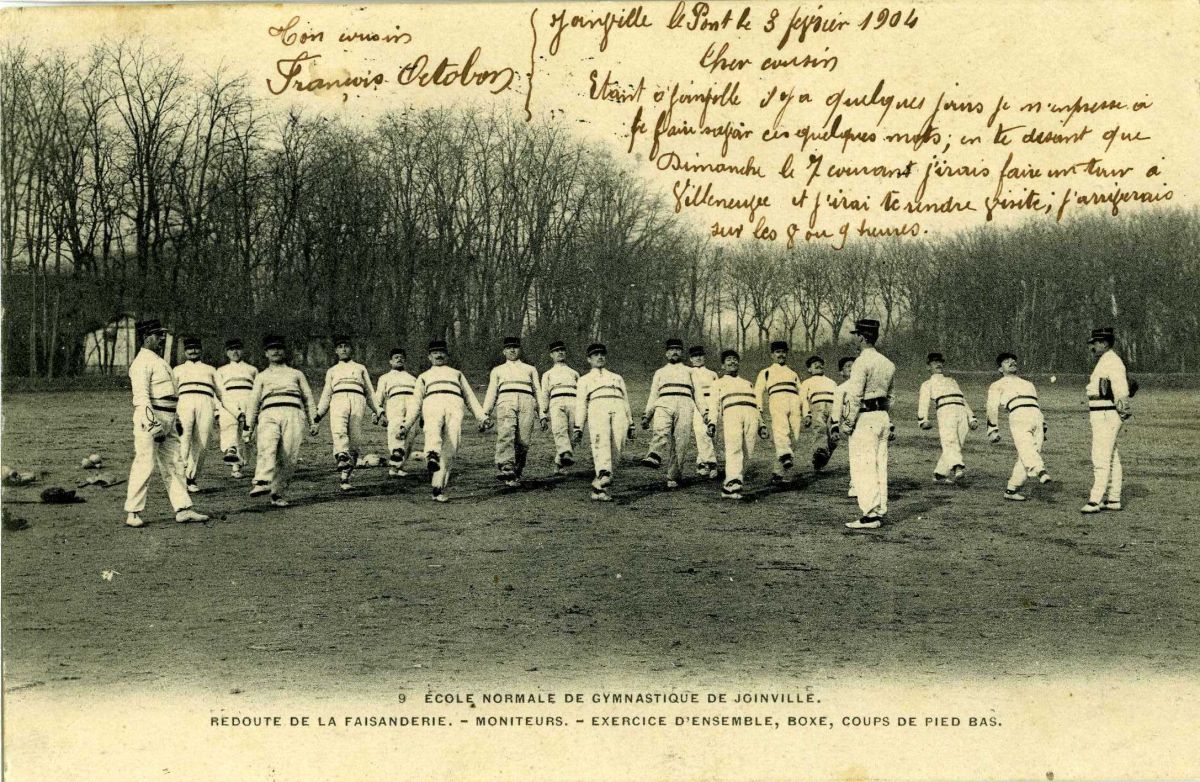 Joinville le Pont le 3 février 1904
Cher cousin
Etant à Joinville il y a quelques jours je m'empresse à
te faire savoir ces quelques mots; en te disant que
Dimanche le 7 courant j'irais faire un tour à
Villeneuve et j'irai te rendre visite; j'arriverais
sur les 8 ou 9 heures.
Ton cousin
François Octobon
9 ÉCOLE NORMALE DE GYMNASTIQUE DE JOINVILLE.
REDOUTE DE LA FAISANDERIE. - MONITEURS. - EXERCICE D'ENSEMBLE, BOXE, COUPS DE PIED BAS.